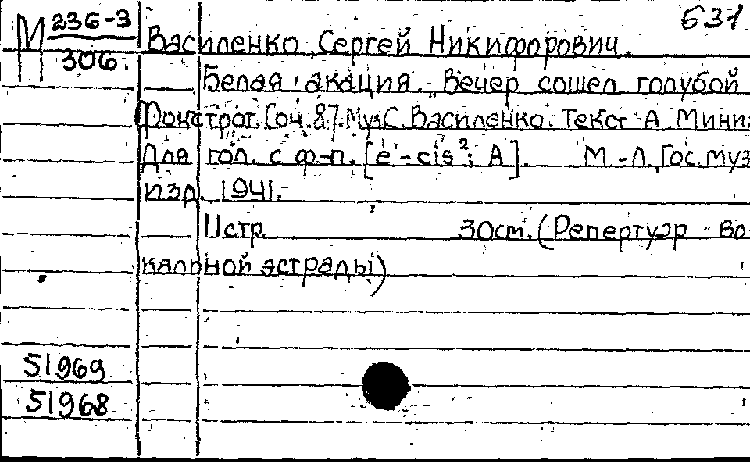 М 236-3
306
631
Василенко, Сергей Никифорович.
Белая акация. Вечер сошел голубой
Фокстрот. Соч. 87. Муз. С. Василенко. Текст А.
Для гол. с ф-п. [e'-cis²; A]. М.-Л, Гос. муз
изд. 1941.
11 стр. 30 см. (Репертуар во-
кальной эстрады)
51969
51968